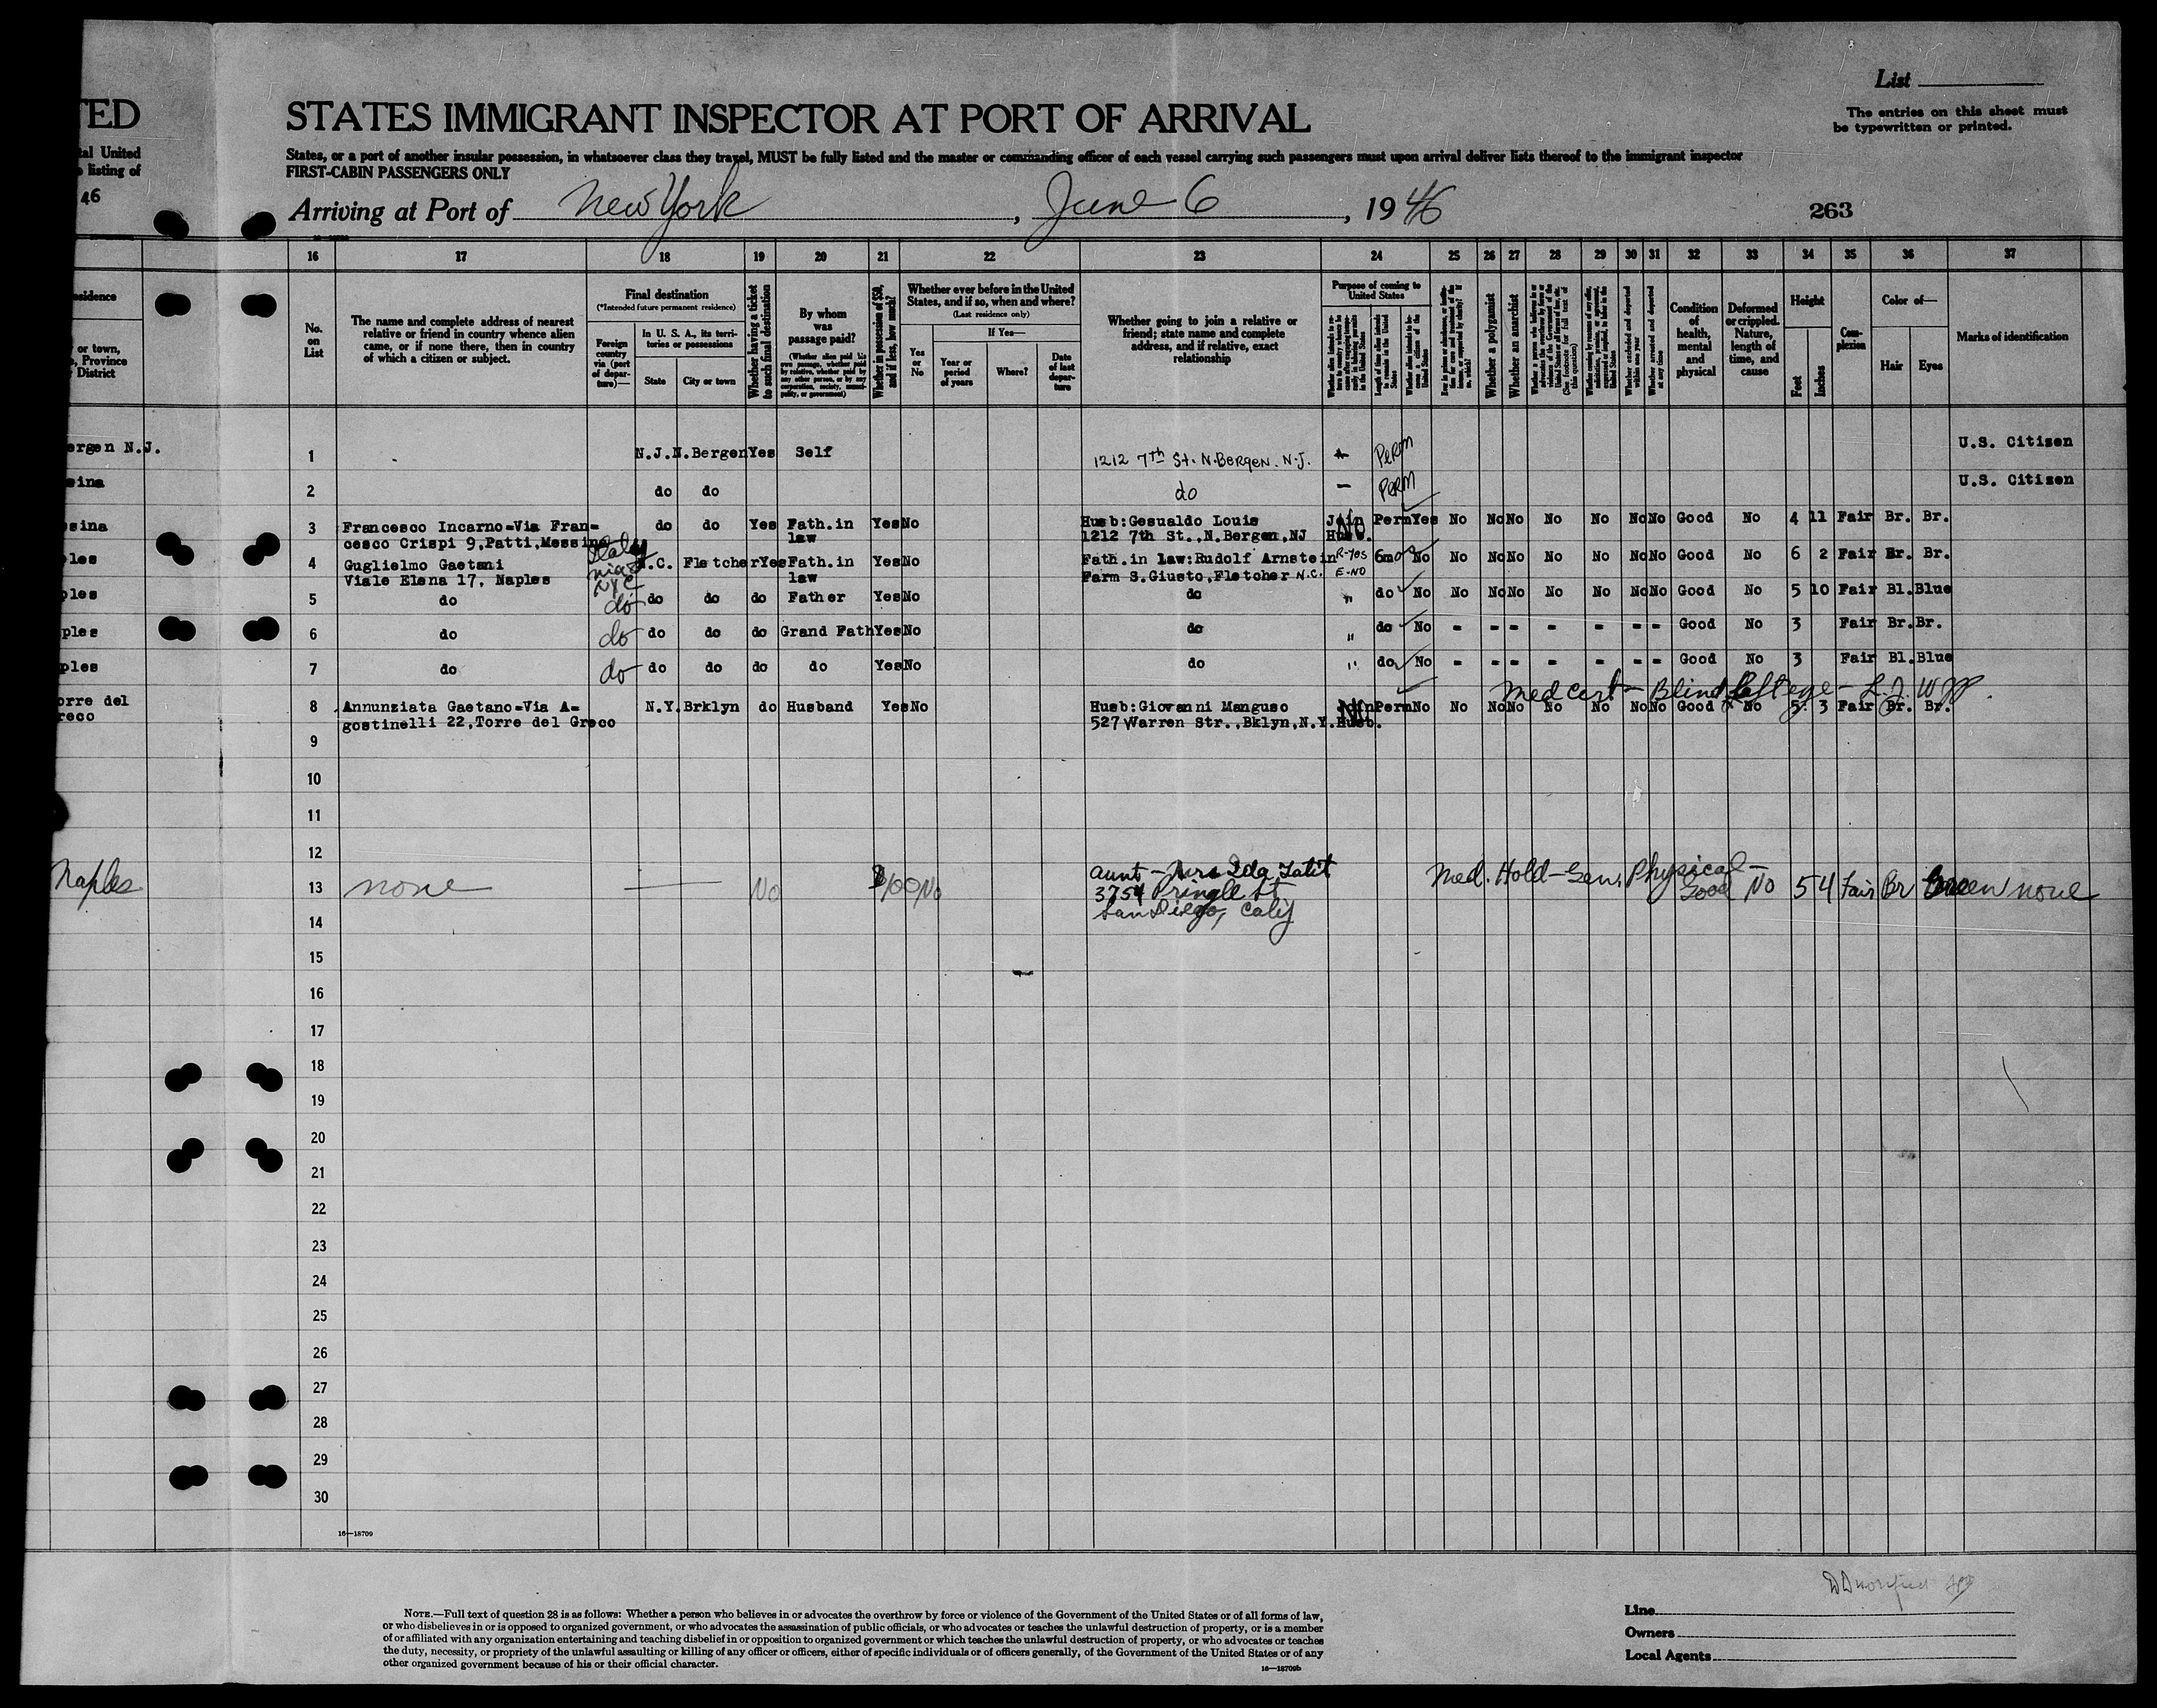 TED
tal United
listing of
46
List
The entries on this sheet must
be typewritten or printed.
STATES IMMIGRANT INSPECTOR AT PORT OF ARRIVAL
States, or a port of another insular possession, in whatsoever class they travel, MUST be fully listed and the master or commanding officer of each vessel carrying such passengers must upon arrival deliver lists thereof to the immigrant inspector
FIRST-CABIN PASSENGERS ONLY
Arriving at Port of New York, June 6, 1946
263
16 17 18 19 20 21 22 23 24 25 26 27 28 29 30 31 32 33 34 35 36 37
esidence
or town,
, Province
District
No.
on
List
The name and complete address of nearest
relative or friend in country whence alien
came, or if none there, then in country
of which a citizen or subject.
Final destination
(*Intended future permanent residence)
Foreign
country
via (port
of depar-
ture)—
In U. S. A., its terri-
tories or possessions
State
City or town
Whether having a ticket
to such final destination
By whom
was
passage paid?
(Whether alien paid his
own passage, whether paid
by relative, whether paid by
any other person, or by any
corporation, society, munici-
pality, or government)
Whether in possession of $50,
and if less, how much?
Whether ever before in the United
States, and if so, when and where?
(Last residence only)
Yes
or
No
If Yes—
Year or
period
of years
Where?
Date
of last
depar-
ture
Whether going to join a relative or
friend; state name and complete
address, and if relative, exact
relationship
Purpose of coming to
United States
Whether a polygamist
Whether an anarchist
Whether excluded and deported
within one year
Whether arrested and deported
at any time
Condition
of
health,
mental
and
physical
Deformed
or crippled.
Nature,
length of
time, and
cause
Height
Feet
Inches
Com-
plexion
Color of—
Hair
Eyes
Marks of identification
ergen N.J.
1 N.J. N.Bergen Yes Self 1212 7th St. N.Bergen. N.J. Perm U.S. Citizen
sina
2 do do do — Perm U.S. Citizen
ssina
3 Francesco Incarno=Via Fran= do do Yes Fath.in Yes No Husb:Gesualdo Louis Join Perm Yes No No No No No No No Good No 4 11 Fair Br. Br.
cesco Crispi 9,Patti,Messina law 1212 7th St.,N.Bergen,NJ Husb. No
ples
4 Guglielmo Gaetani Italy N.C. Fletcher Yes Fath.in Yes No Fath.in law:Rudolf Arnstein R-Yes 6mo No No No No No No No No Good No 6 2 Fair Br. Br.
Viale Elena 17, Naples via NYC law Farm S.Giusto,Fletcher N.C. E-No
ples
5 do do do do do Father Yes No do " do No No No No No No No No Good No 5 10 Fair Bl. Blue
ples
6 do do do do do Grand Fath Yes No do " do No - - - - - - - Good No 3 Fair Br. Br.
ples
7 do do do do do do Yes No do " do No - - - - - - - Good No 3 Fair Bl. Blue
Med cert - Blind left eye -
orre del
reco
8 Annunziata Gaetano=Via A= N.Y. Brklyn do Husband Yes No Husb:Giovanni Manguso Join Perm No No No No No No No No Good No 5 3 Fair Br. Br.
gostinelli 22,Torre del Greco 527 Warren Str.,Bklyn,N.Y. Husb. No
9
10
11
12
Naples
13 none — No $100 No Aunt - Mrs Ida Med. Hold - Gen. Physical - Good No 5 4 Fair Br Green none
3754 Pringle St
San Diego, Calif
14
15
16
17
18
19
20
21
22
23
24
25
26
27
28
29
30
16—18709
NOTE.—Full text of question 28 is as follows: Whether a person who believes in or advocates the overthrow by force or violence of the Government of the United States or of all forms of law,
or who disbelieves in or is opposed to organized government, or who advocates the assassination of public officials, or who advocates or teaches the unlawful destruction of property, or is a member
of or affiliated with any organization entertaining and teaching disbelief in or opposition to organized government or which teaches the unlawful destruction of property, or who advocates or teaches
the duty, necessity, or propriety of the unlawful assaulting or killing of any officer or officers, either of specific individuals or of officers generally, of the Government of the United States or of any
other organized government because of his or their official character.
16—18709b
Line
Owners
Local Agents